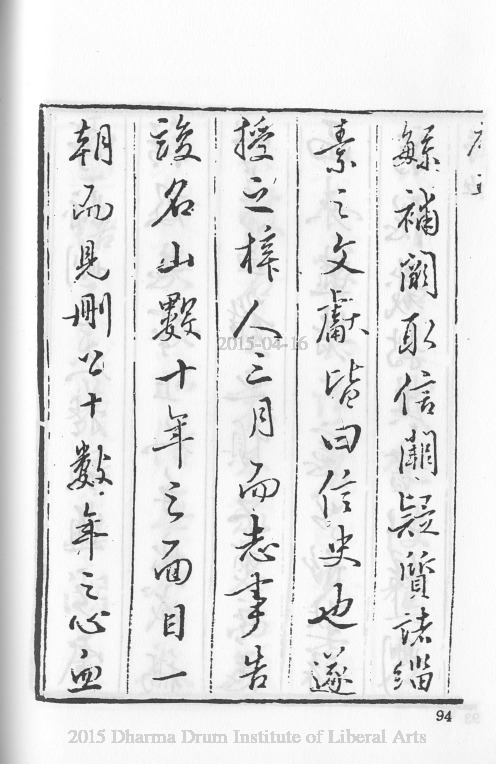 補闕取信闕疑質諸緇
素之文獻皆曰信史也遂
授之梓人三月而志事告
竣名山數十年之面目一
朝而見刪公十數年之心血
94
2015-04-16
2015 Dharma Drum Institute of Liberal Arts